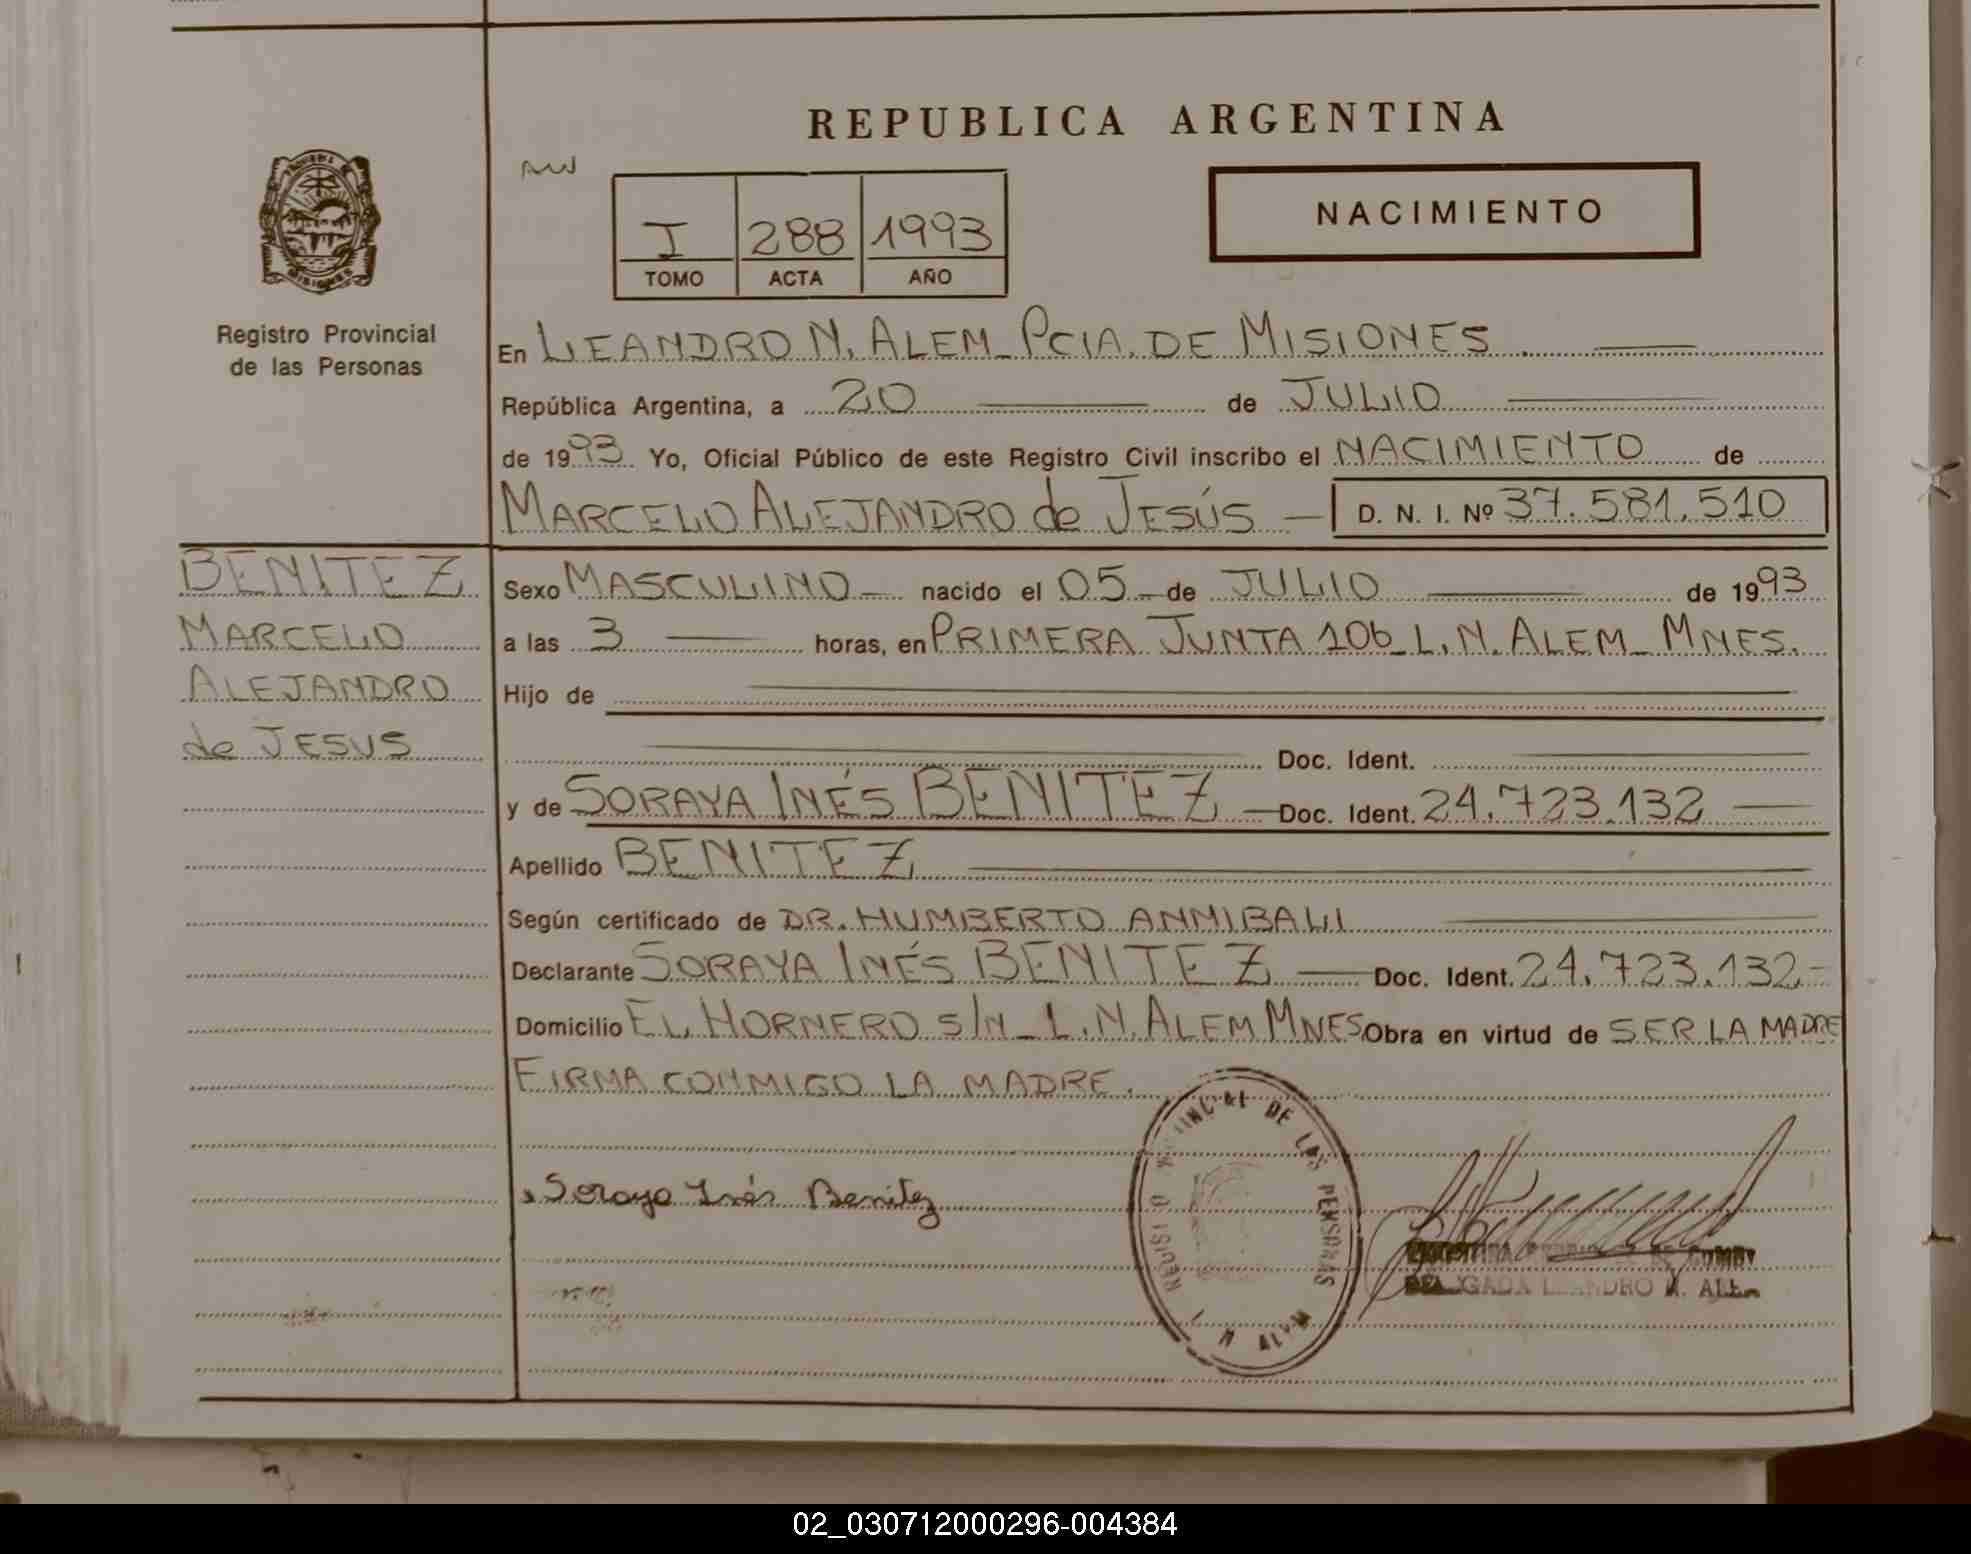 REPUBLICA ARGENTINA
NACIMIENTO
I 288 1993
TOMO ACTA AÑO
Registro Provincial
de las Personas
En LEANDRO N. ALEM_ PCIA. DE MISIONES
República Argentina, a 20 de JULIO
de 1993 Yo, Oficial Público de este Registro Civil inscribo el NACIMIENTO de
MARCELO ALEJANDRO de JESÚS — D. N. I. Nº 37.581.510
BENITEZ
MARCELO
ALEJANDRO
de JESUS
Sexo MASCULINO — nacido el 05 — de JULIO de 1993
a las 3 horas, en PRIMERA JUNTA 106_L.N. ALEM_MNES.
Hijo de
Doc. Ident.
y de SORAYA INÉS BENITEZ — Doc. Ident. 24.723.132
Apellido BENITEZ
Según certificado de DR. HUMBERTO ANNIBALI
Declarante SORAYA INÉS BENITEZ — Doc. Ident. 24.723.132-
Domicilio EL HORNERO S/N_L.N. ALEM MNES Obra en virtud de SER LA MADRE
FIRMA CONMIGO LA MADRE.
Soraya Inés Benitez
DE LAS PERSONAS
LEANDRO N. ALEM
02_030712000296-004384